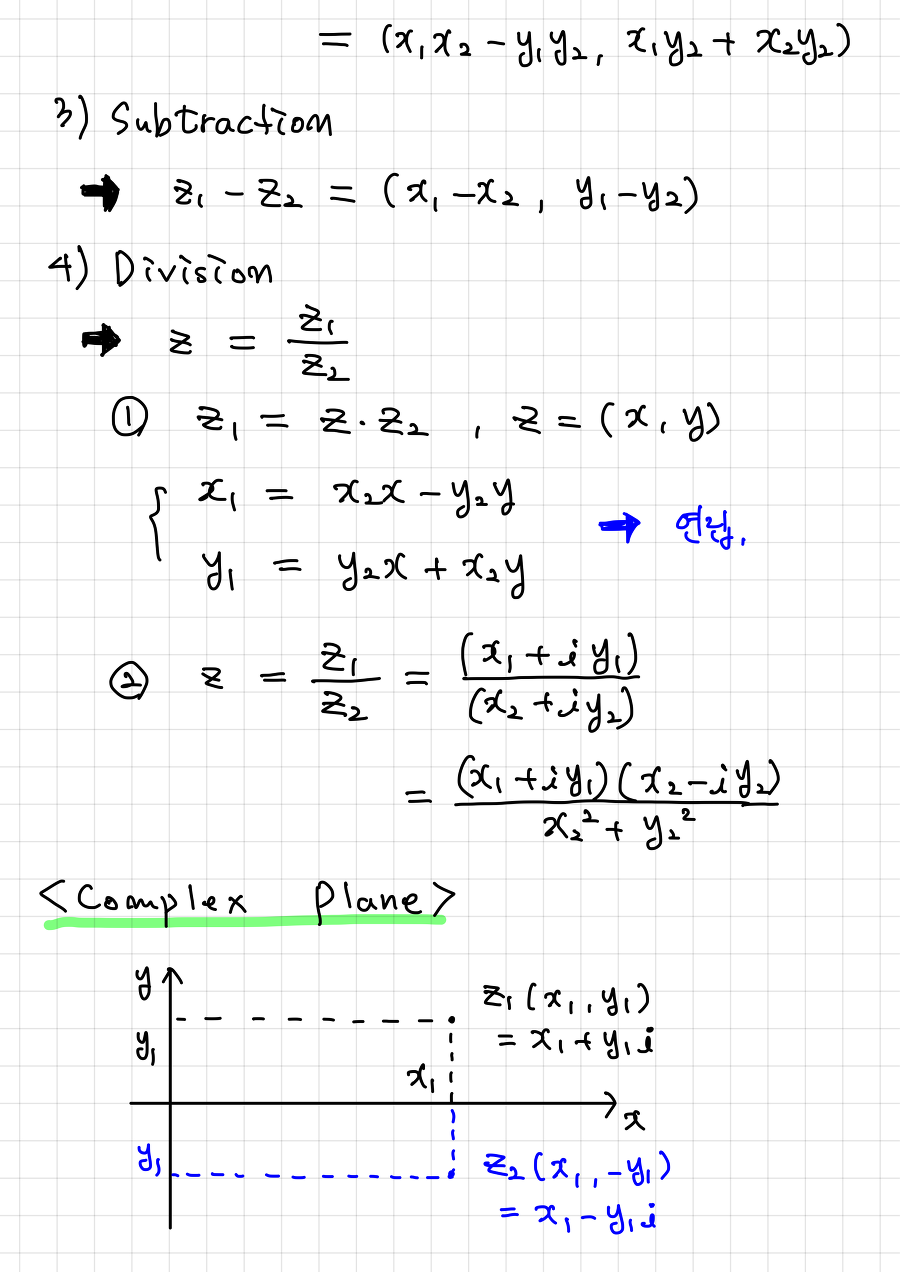 = (x₁x₂ - y₁y₂, x₁y₂ + x₂y₂)
3) Subtraction
➡ z₁ - z₂ = (x₁ - x₂, y₁ - y₂)
4) Division
➡ z = z₁/z₂
① z₁ = z · z₂ , z = (x, y)
{ x₁ = x₂x - y₂y
➡ 연립.
y₁ = y₂x + x₂y
② z = z₁/z₂ = (x₁ + iy₁)/(x₂ + iy₂)
= (x₁ + iy₁)(x₂ - iy₂)/x₂² + y₂²
<Complex Plane>
y
z₁(x₁, y₁)
y₁
= x₁ + y₁i
x₁
x
y₁
z₂(x₁, -y₁)
= x₁ - y₁i